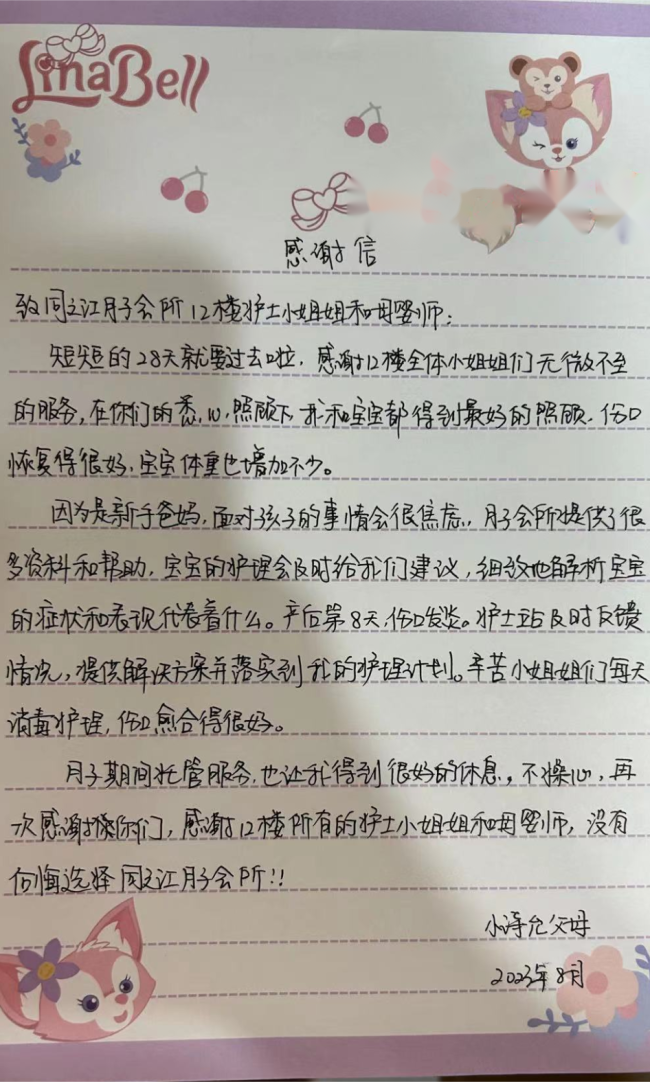 LinaBell
感谢信
致同之江月子会所12楼护士小姐姐和母婴师:
短短的28天就要过去啦，感谢12楼全体小姐姐们无微不至
的服务，在你们的悉心照顾下我和宝宝都得到最好的照顾，伤口
恢复得很好，宝宝体重也增加不少。
因为是新手爸妈，面对孩子的事情会很焦虑，月子会所提供了很
多资料和帮助，宝宝的护理会及时给我们建议，细致地解析宝宝
的症状和表现代表着什么。产后第8天，伤口发炎。护士站及时反馈
情况，提供解决方案并落实到我的护理计划。辛苦小姐姐们每天
消毒护理，伤口愈合得很好。
月子期间托管服务，也让我得到很好的休息，不操心，再
次感谢你们，感谢12楼所有的护士小姐姐和母婴师，没有
后悔选择同之江月子会所!!
小诗允父母
2023年8月